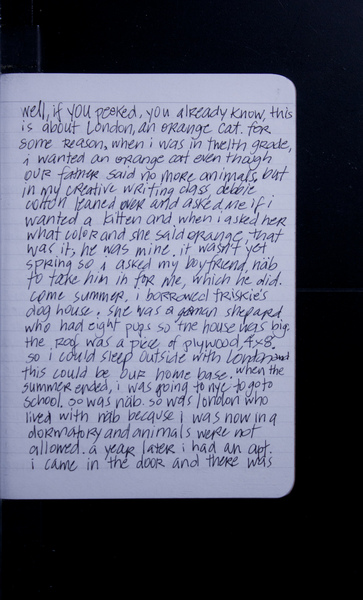 well, if you peeked, you already know, this
is about London, an orange cat. for
some reason, when i was in twelth grade,
i wanted an orange cat even though
our father said no more animals, but
in my creative writing class, debbie
colton leaned over and asked me if i
wanted a kitten and when i asked her
what color and she said orange, that
was it, he was mine. it wasn't yet
spring so i asked my boyfriend, nab
to take him in for me, which he did.
come summer, i borrowed friskie's
dog house. she was a german shepard
who had eight pups so the house was big.
the roof was a piece of plywood, 4x8,
so i could sleep outside with London and
this could be our home base. when the
summer ended, i was going to nyc to go to
school. so was nab. so was london who
lived with nab because i was now in a
dormatory and animals were not
allowed. a year later i had an apt.
i came in the door and there was